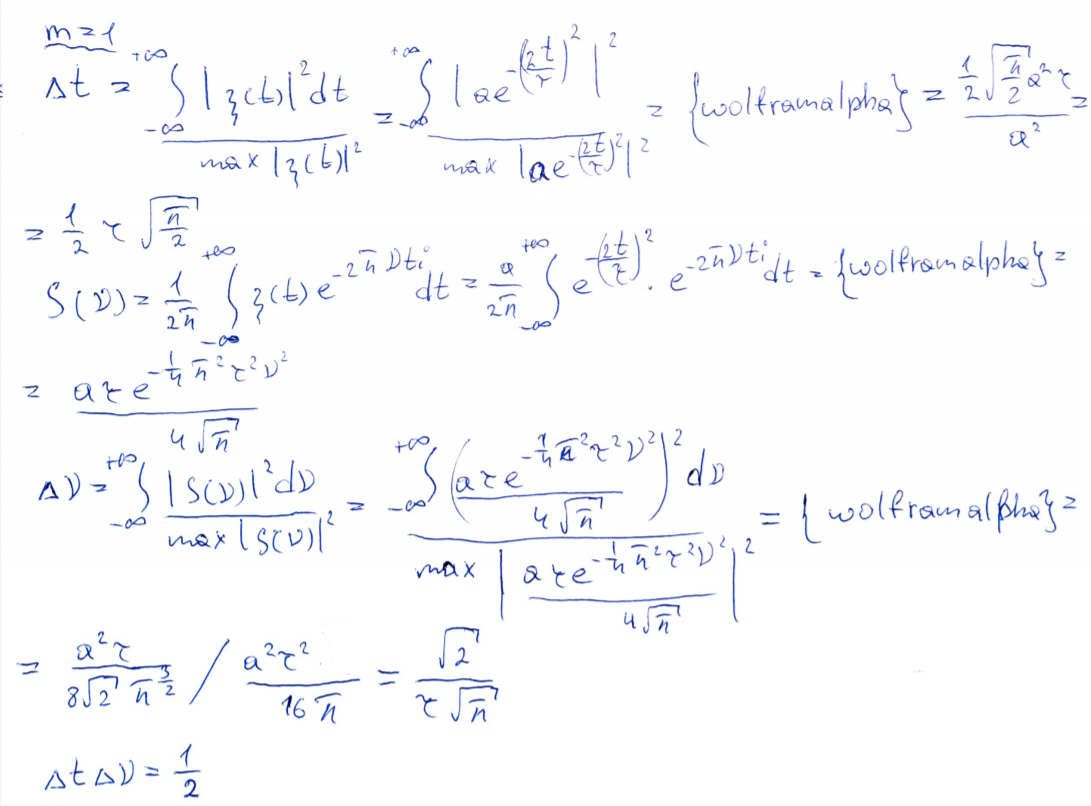 m=1
Δt = ∫_{-∞}^{+∞} |ʒ(t)|² dt / max |ʒ(t)|² = ∫_{-∞}^{+∞} |ae^{-(2t/τ)²}|² / max |ae^{-(2t/τ)²}|² = {wolframalpha} = (1/2 √(π/2) a² τ) / a² =
= 1/2 τ √(π/2)
S(ν) = 1/2π ∫_{-∞}^{+∞} ʒ(t) e^{-2πνti} dt = a/2π ∫_{-∞}^{+∞} e^{-(2t/τ)²} · e^{-2πνti} dt = {wolframalpha} =
= aτe^{-1/4 π²τ²ν²} / 4√π
Δν = ∫_{-∞}^{+∞} |S(ν)|² dν / max |S(ν)|² = ∫_{-∞}^{+∞} (aτe^{-1/4 π²τ²ν²} / 4√π)² dν / max |aτe^{-1/4 π²τ²ν²} / 4√π|² = {wolframalpha} =
= a²τ / 8√2 π^{3/2} / a²τ² / 16π = √2 / τ√π
Δt Δν = 1/2